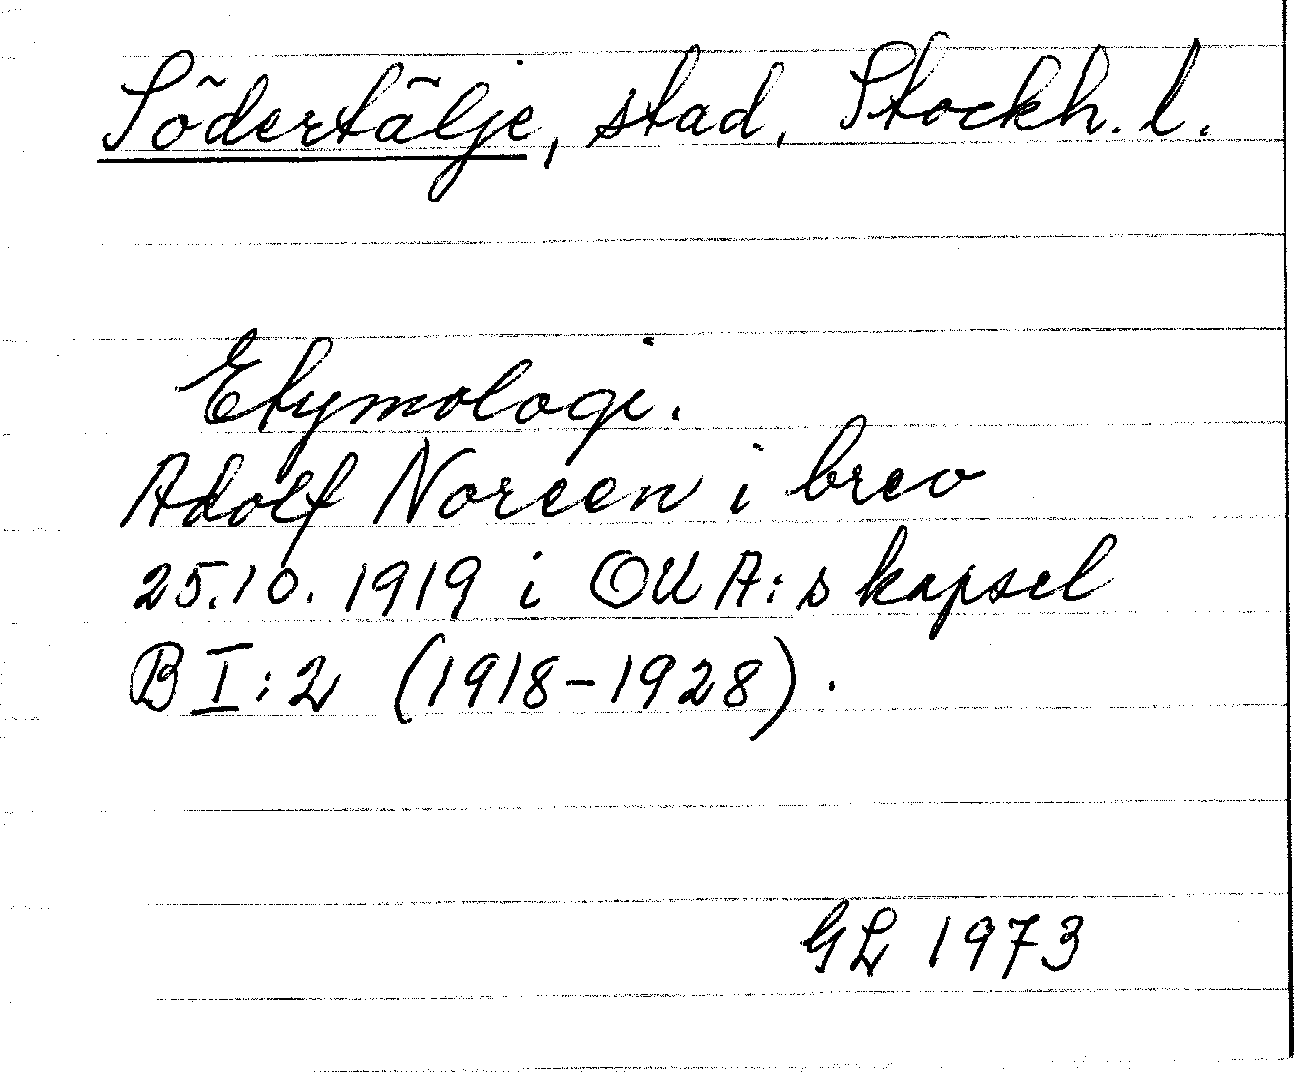 Södertälje, stad, Stockh. l.
Etymologi.
Adolf Noreen i brev
25.10.1919 i OUA:s kapsel
B I:2 (1918-1928).
GL 1973